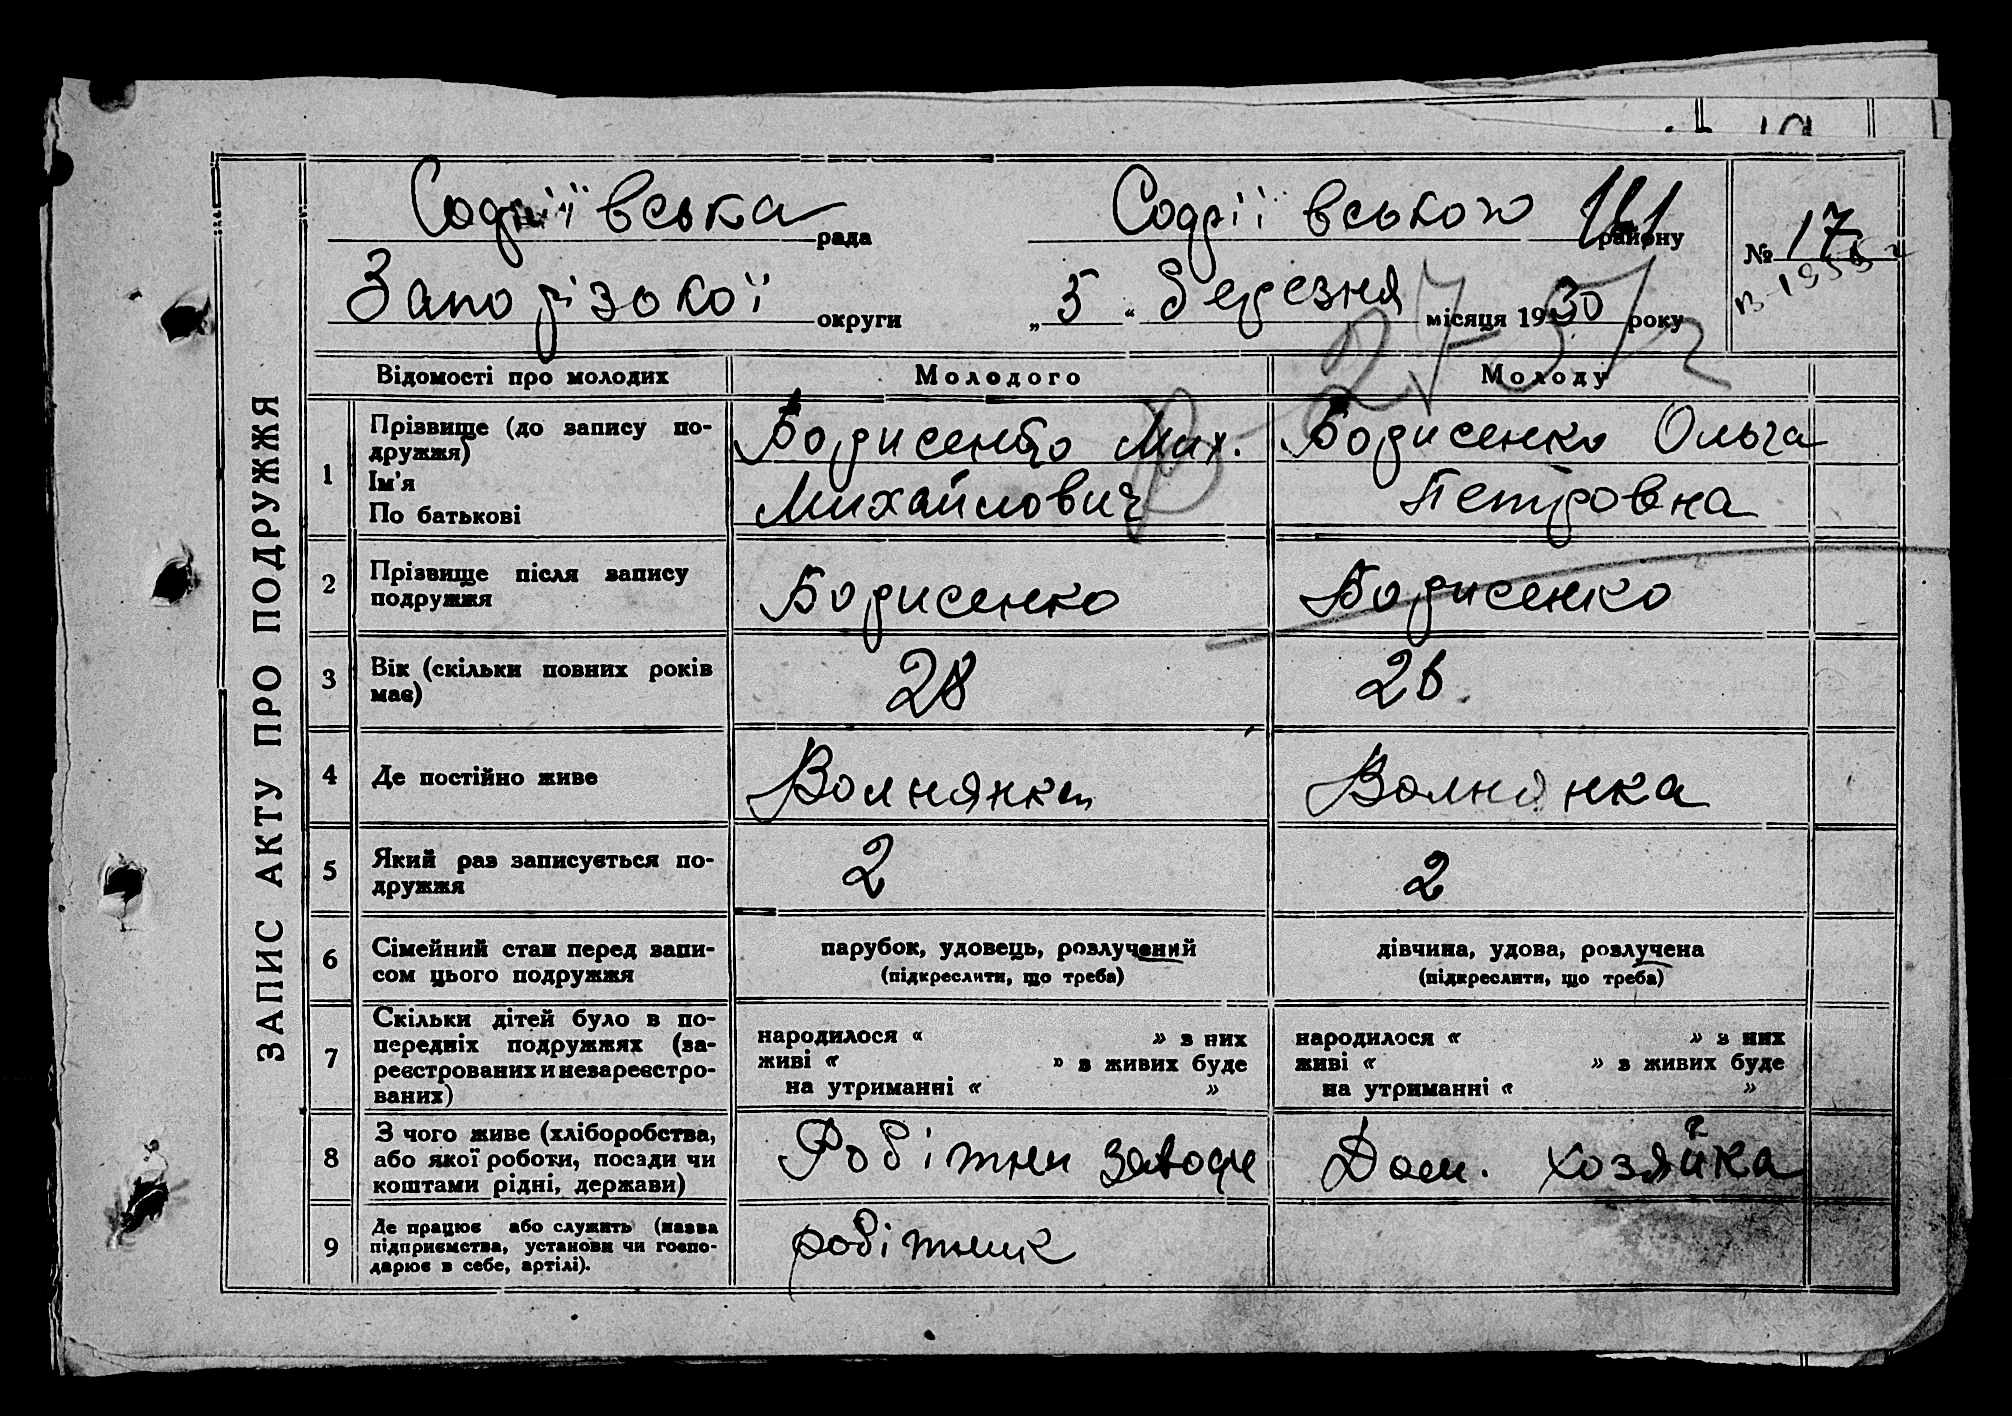 ЗАПИС АКТУ ПРО ПОДРУЖЖЯ
Софіївська рада
Софіївського району
№ 17
Запорізької округи
„ 5 “ березня місяця 1930 року
Відомості про молодих
Молодого
Молоду
1
Прізвище (до запису по-
дружжя)
Ім'я
По батькові
Борисенко Мих.
Михайлович
Борисенко Ольга
Петровна
2
Прізвище після запису
подружжя
Борисенко
Борисенко
3
Вік (скільки повних років
має)
28
26
4
Де постійно живе
Волнянка
Волнянка
5
Який раз записується по-
дружжя
2
2
6
Сімейний стан перед запи-
сом цього подружжя
парубок, удовець, розлучений
(підкреслити, що треба)
дівчина, удова, розлучена
(підкреслити, що треба)
7
Скільки дітей було в по-
передніх подружжях (за-
реєстрованих и незареєстро-
ваних)
народилося « » в них
живі « » в живих буде
на утриманні « »
народилося « » з них
живі « » в живих буде
на утриманні « »
8
З чого живе (хліборобства,
або якої роботи, посади чи
коштами рідні, держави)
Робітни
Дом. хозяйка
9
Де працює або служить (назва
підприємства, установи чи госпо-
дарює в себе, артілі).
робітник